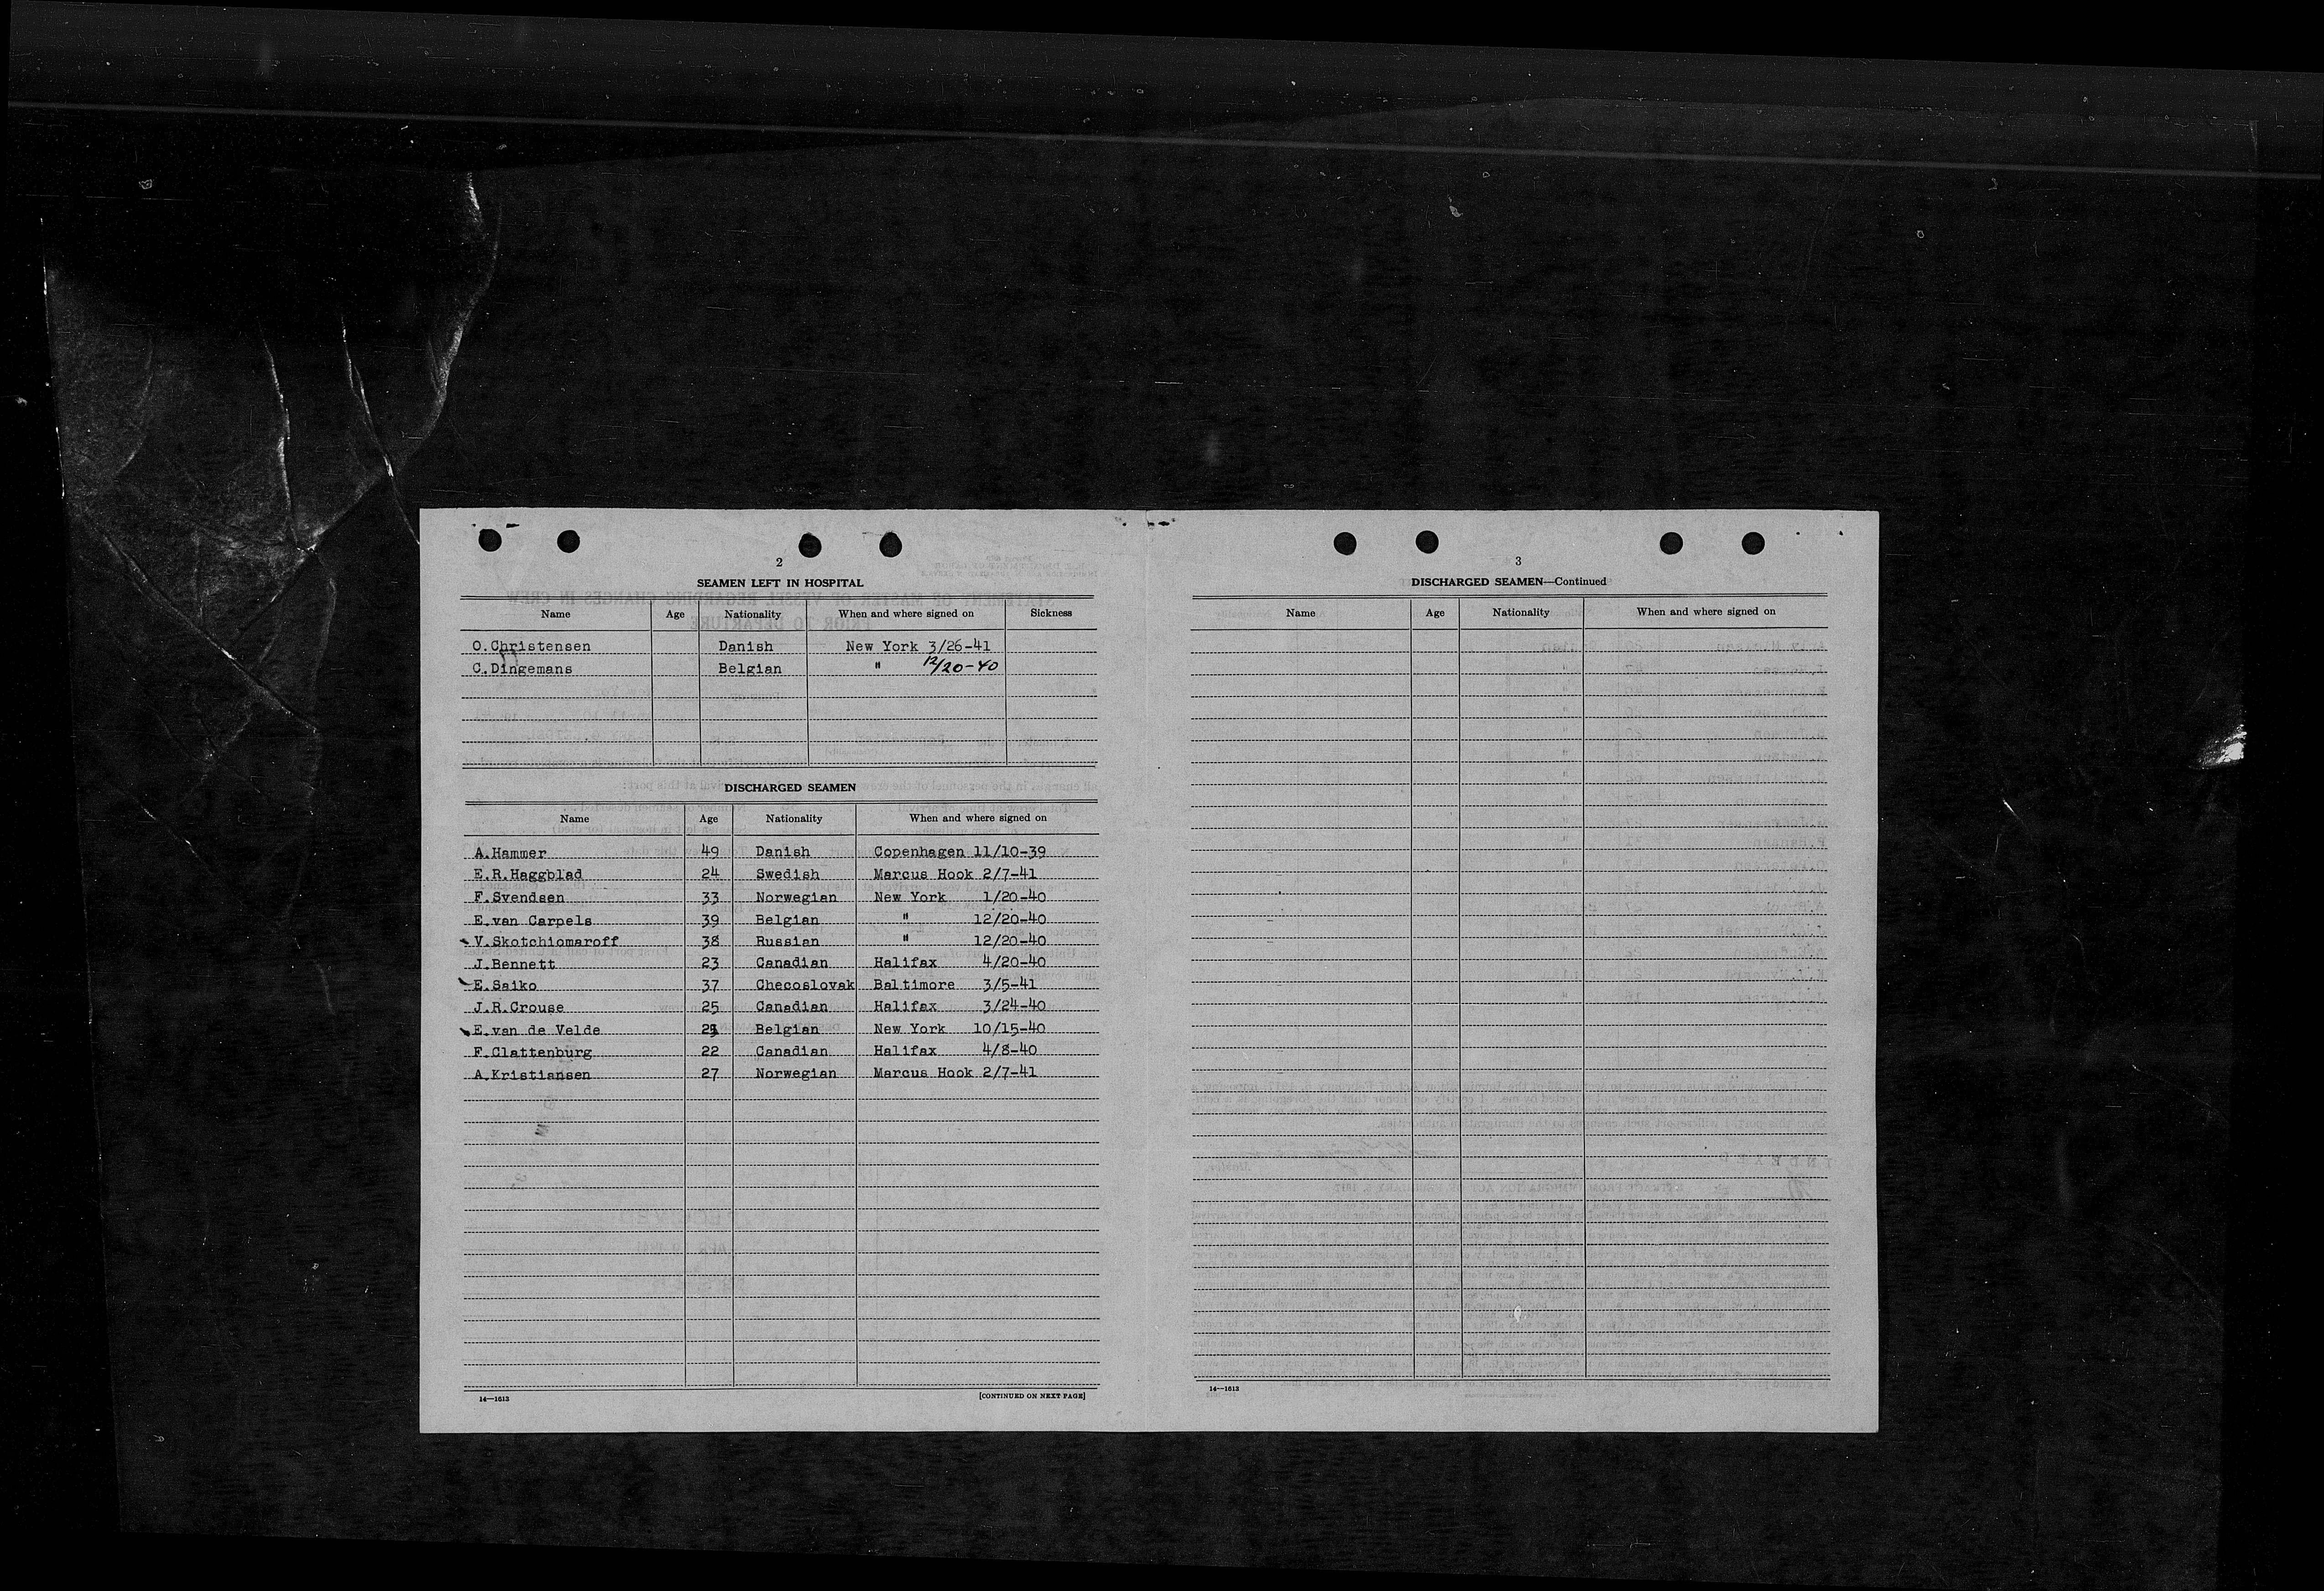 2
SEAMEN LEFT IN HOSPITAL
Name Age Nationality When and where signed on Sickness
O.Christensen Danish New York 3/26-41
C.Dingemans Belgian " 12/20-40
DISCHARGED SEAMEN
Name Age Nationality When and where signed on
A.Hammer 49 Danish Copenhagen 11/10-39
E.R.Haggblad 24 Swedish Marcus Hook 2/7-41
F.Svendsen 33 Norwegian New York 1/20-40
E.van Carpels 39 Belgian " 12/20-40
V.Skotchiomaroff 38 Russian " 12/20-40
J.Bennett 23 Canadian Halifax 4/20-40
E.Saiko 37 Checoslovak Baltimore 3/5-41
J.R.Crouse 25 Canadian Halifax 3/24-40
E.van de Velde Belgian New York 10/15-40
F.Clattenburg 22 Canadian Halifax 4/8-40
A.Kristiansen 27 Norwegian Marcus Hook 2/7-41
14—1613 [CONTINUED ON NEXT PAGE]
3
DISCHARGED SEAMEN—Continued
Name Age Nationality When and where signed on
14—1613